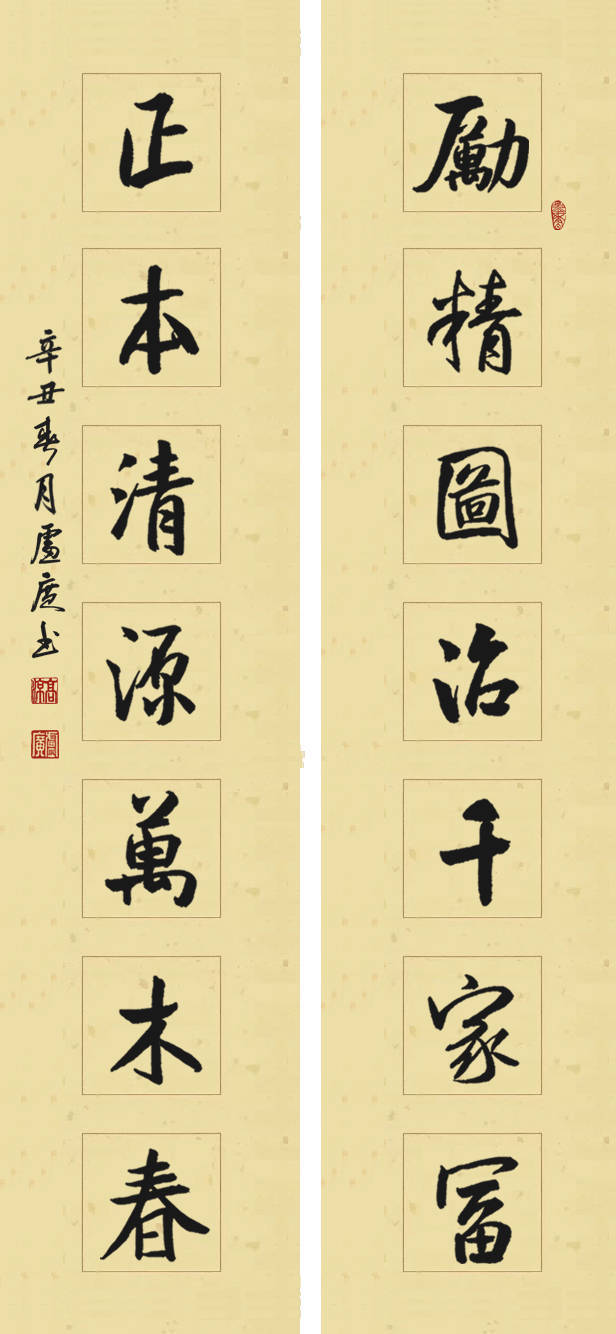 勵精圖治千家冨
正本清源萬木春
辛丑春月盧廣书